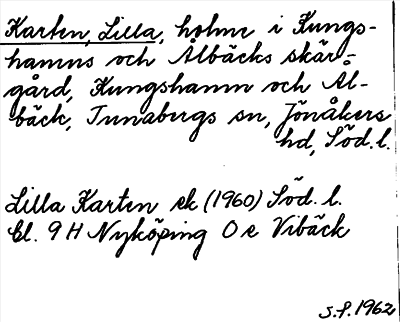 Karten, Lilla, holme i Kungs-
hamns och Ålbäcks skär-
gård, Kungshamn och Ål-
bäck, Tunabergs sn, Jönåkers
hd, Söd. l.
Lilla Karten ek (1960) Söd. l.
bl. 9 H Nyköping O e Vibäck
S.F. 1962